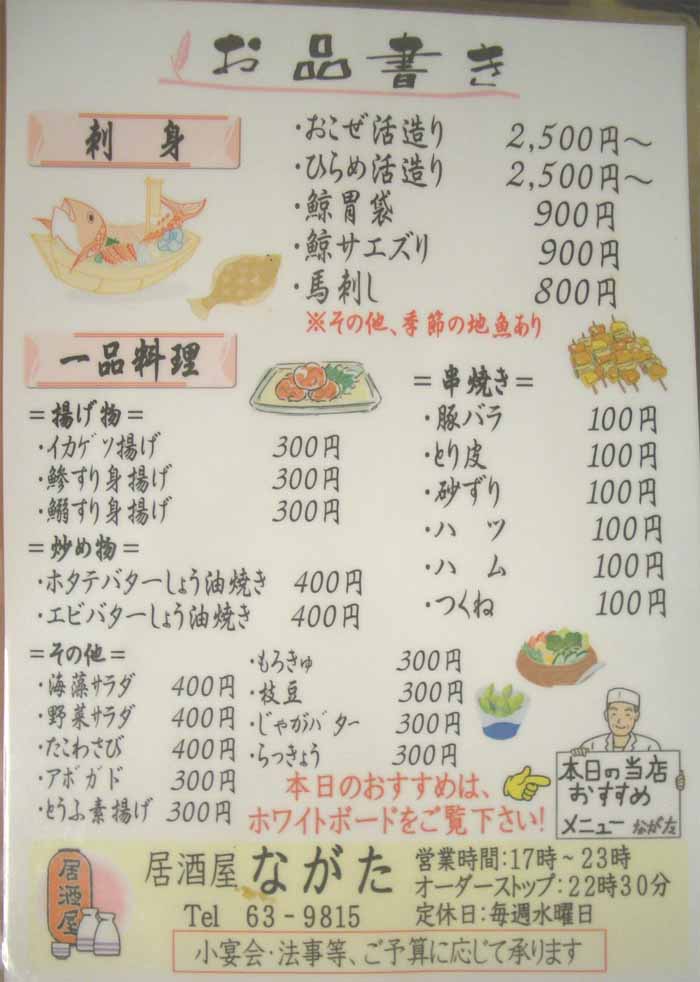 お品書き
刺身
・おこぜ活造り 2,500円～
・ひらめ活造り 2,500円～
・鯨胃袋 900円
・鯨サエズリ 900円
・馬刺し 800円
※その他、季節の地魚あり
一品料理
＝揚げ物＝
・イカゲソ揚げ 300円
・鯵すり身揚げ 300円
・鰯すり身揚げ 300円
＝炒め物＝
・ホタテバターしょう油焼き 400円
・エビバターしょう油焼き 400円
＝串焼き＝
・豚バラ 100円
・とり皮 100円
・砂ずり 100円
・ハツ 100円
・ハム 100円
・つくね 100円
＝その他＝
・海藻サラダ 400円
・野菜サラダ 400円
・たこわさび 400円
・アボガド 300円
・とうふ素揚げ 300円
・もろきゅ 300円
・枝豆 300円
・じゃがバター 300円
・らっきょう 300円
本日のおすすめは、
ホワイトボードをご覧下さい!
本日の当店
おすすめ
メニュー ながた
居酒屋
居酒屋 ながた
Tel 63-9815
営業時間:17時～23時
オーダーストップ:22時30分
定休日:毎週水曜日
小宴会・法事等、ご予算に応じて承ります